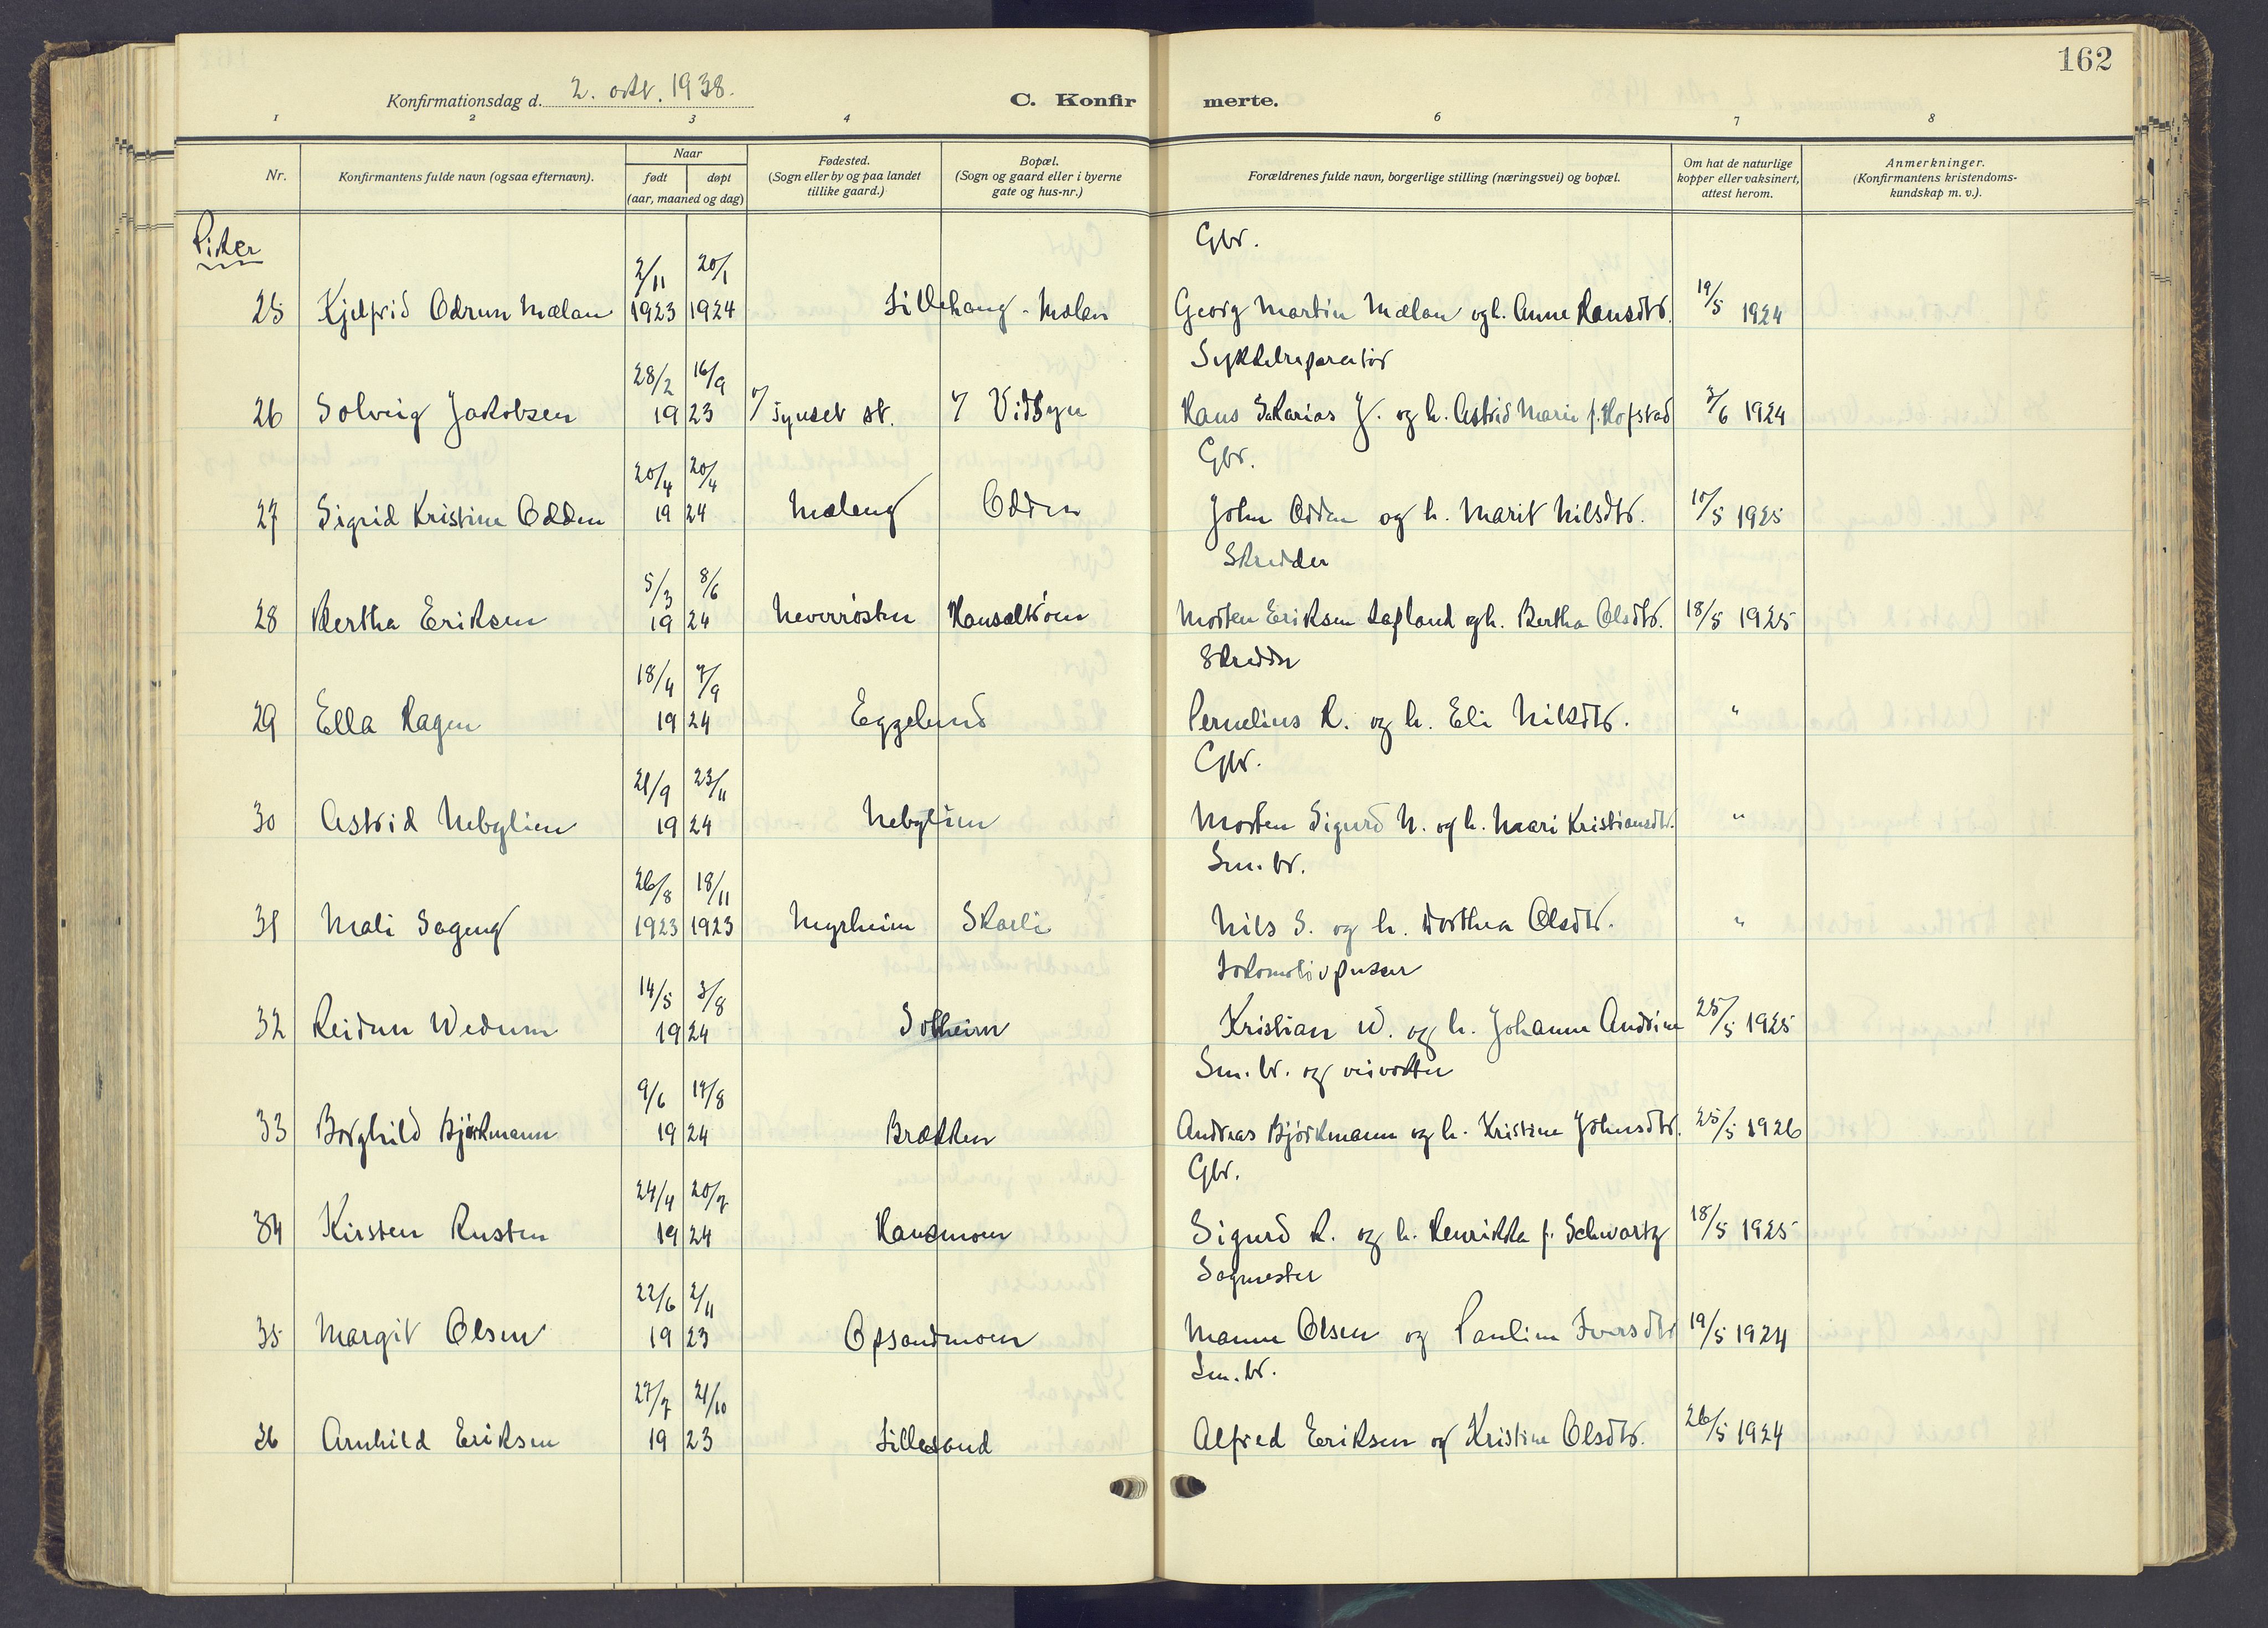 162
Konfirmationsdag d. 2. okt. 1938.
C. Konfir merte.
1 2 3 4 6 7 8
Nr.
Konfirmantens fulde navn (ogsaa efternavn).
Naar
født døpt
(aar, maaned og dag)
Fødested.
(Sogn eller by og paa landet
tillike gaard.)
Bopæl.
(Sogn og gaard eller i byerne
gate og hus-nr.)
Forældrenes fulde navn, borgerlige stilling (næringsvei) og bopæl.
Om hat de naturlige
kopper eller vaksinert,
attest herom.
Anmerkninger.
(Konfirmantens kristendoms-
kundskap m. v.).
Piker
2/11 20/1 Gbr.
25 Kjelfrid Odrun Mælan 1923 1924 Lillehaug - Mælen Georg Martin Mælan og h. Anne Hansdtr. 19/5 1924
28/2 16/9 Sykkelreparatør
26 Solveig Jakobsen 19 23 Tynset st. Vidsyn Hans Sakarias J. og h. Astrid Marie f. Hofstad 3/6 1924
20/4 20/4 Gbr.
27 Sigrid Kristine Odden 19 24 Mæleng Odden John Odden og h. Marit Nilsdtr. 10/5 1925
5/3 8/6 Skredder
28 Bertha Eriksen 19 24 Neverrøsten Morten Eriksen Lafland og h. Bertha Olsdtr. 18/5 1925
18/4 7/9 Skredder
29 Ella Ragen 19 24 Eggelund Pernelius R. og h. Eli Nilsdtr. "
21/9 23/11 Gbr.
30 Astrid Nebylien 19 24 Nebylien Morten Sigurd N. og h. Maari Kristiansdtr. "
26/8 18/11 Sm. br.
31 Mali Sageng 1923 1923 Myrheim Skarli Nils S. og h. Dorthea Olsdtr. "
14/5 3/8 Lokomotivpusser
32 Reidun Wedum 19 24 Solheim Kristian W. og h. Johanne Andrine 25/5 1925
9/6 17/8 Sm. br. og veivokter
33 Borghild Bjørkmann 19 24 Brækken Andreas Bjørkmann og h. Kristine Johnsdtr. 25/5 1926
24/4 20/7 Gbr.
34 Kirsten Rusten 19 24 Hansmoen Sigurd R. og h. Henrikka f. Schwartz 18/5 1925
22/6 2/11 Sagmester
35 Margit Olsen 19 23 Opsandmoen Manne Olsen og Pauline Iversdtr 19/5 1924
27/7 21/10 Sm. br.
36 Arnhild Eriksen 19 23 Lillesand Alfred Eriksen og Kristine Olsdtr. 26/5 1924